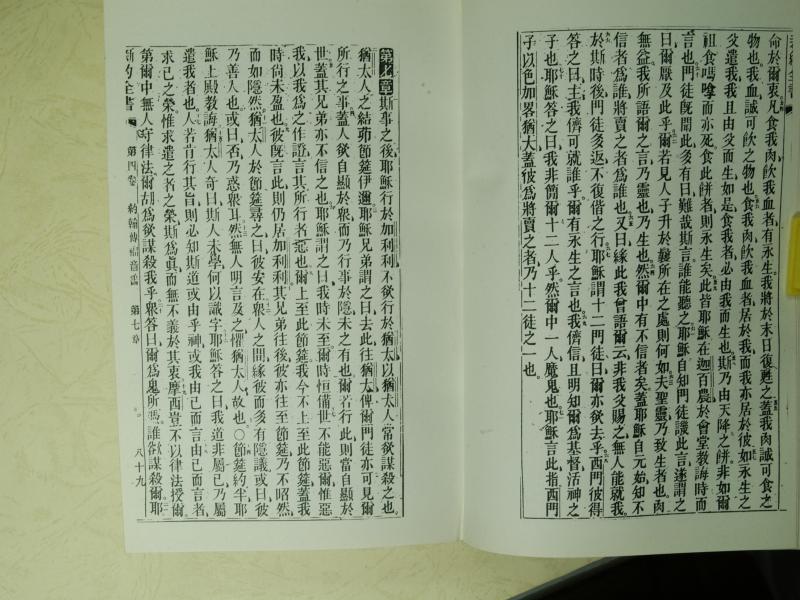 命於爾衷凡食我肉飲我血者有永生我將於末日復甦之蓋我肉誠可食之
物也我血誠可飲之物也食我肉飲我血者居於我而我亦居於彼如永生之
父遣我我且由父而生如是食我者必由我而生也斯乃由天降之餅非如爾
祖食嗎嗱而亦死食此餅者則永生矣此皆耶穌在迦百農於會堂教誨時而
言也門徒旣聞此多有曰難哉斯言誰能聽之耶穌自知門徒譏此言遂謂之
曰爾厭及此乎爾若見人子升於曩所在之處則何如夫聖靈乃致生者也肉
無益我所語爾之言乃靈也乃生也然爾中有不信者矣蓋耶穌自元始知不
信者爲誰將賣之者爲誰也又曰緣此我曾語爾云非我父賜之無人能就我
於斯時後門徒多返不復偕之行耶穌謂十二門徒曰爾亦欲去乎西門彼得
答之曰主我儕可就誰乎爾有永生之言也我儕信且明知爾爲基督活神之
子也耶穌答之曰我非簡爾十二人乎然爾中一人魔鬼也耶穌言此指西門
子以色加畧猶大蓋彼爲將賣之者乃十二徒之一也
第七章斯事之後耶穌行於加利利不欲行於猶太以猶太人常欲謀殺之也
猶太人之結茆節筵伊邇耶穌兄弟謂之曰去此往猶太俾爾門徒亦可見爾
所行之事蓋人欲自顯於衆而乃行事於隱未之有也爾若行此則當自顯於
世蓋其兄弟亦不信之也耶穌謂之曰我時未至爾時恒備世不能惡爾惟惡
我以我爲之作證言其所行者惡也爾上至此節筵我今不上至此節筵蓋我
時尙未盈也彼旣言此則仍居加利利其兄弟往後彼亦往至節筵乃不昭然
而如隱然猶太人於節筵尋之曰彼安在衆人之間緣彼而多有隱議或曰彼
乃善人也或曰否乃惑衆耳然無人明言及之懼猶太人故也○節筵約半耶
穌上殿教誨猶太人奇曰斯人未學何以識字耶穌答之曰我道非屬已乃屬
遣我者也人若肯行其旨則必知斯道或由乎神或我由已而言由已而言者
求已之榮惟求遣之者之榮斯爲眞而無不義於其衷摩西豈不以律法授爾
第爾中無人守律法爾胡爲欲謀殺我乎衆答曰爾爲鬼所憑誰欲謀殺爾耶
新約全書
第四卷
約翰傳福音書
第七章
八十九